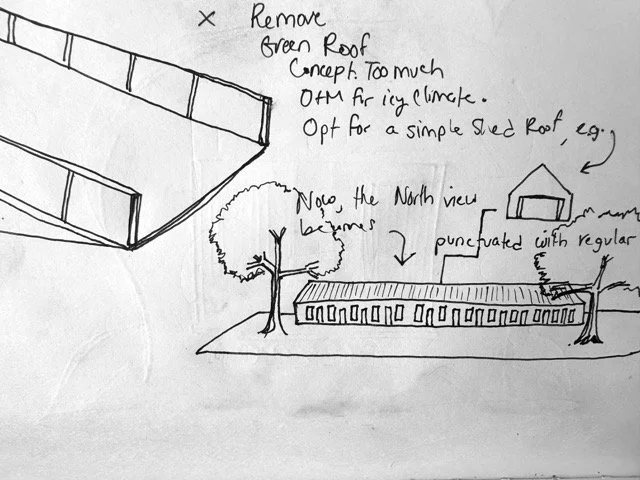 x Remove
Green Roof
Concept. Too much
O+M for icy Climate.
Opt for a simple Shed Roof, e.g.
Now, the North view
becomes
punctuated with regular